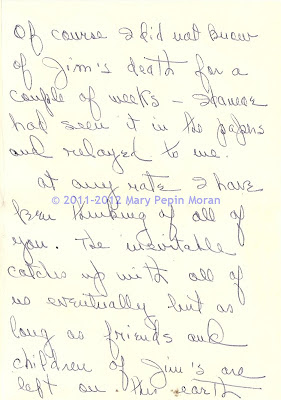 Of course I did not know
of Jim's death for a
couple of weeks –
had seen it in the papers
and relayed to me.
at any rate I have
© 2011-2012 Mary Pepin Moran
been thinking of all of
you. The inevitable
catches up with all of
us eventually but as
long as friends and
children of Jim's are
left on this earth